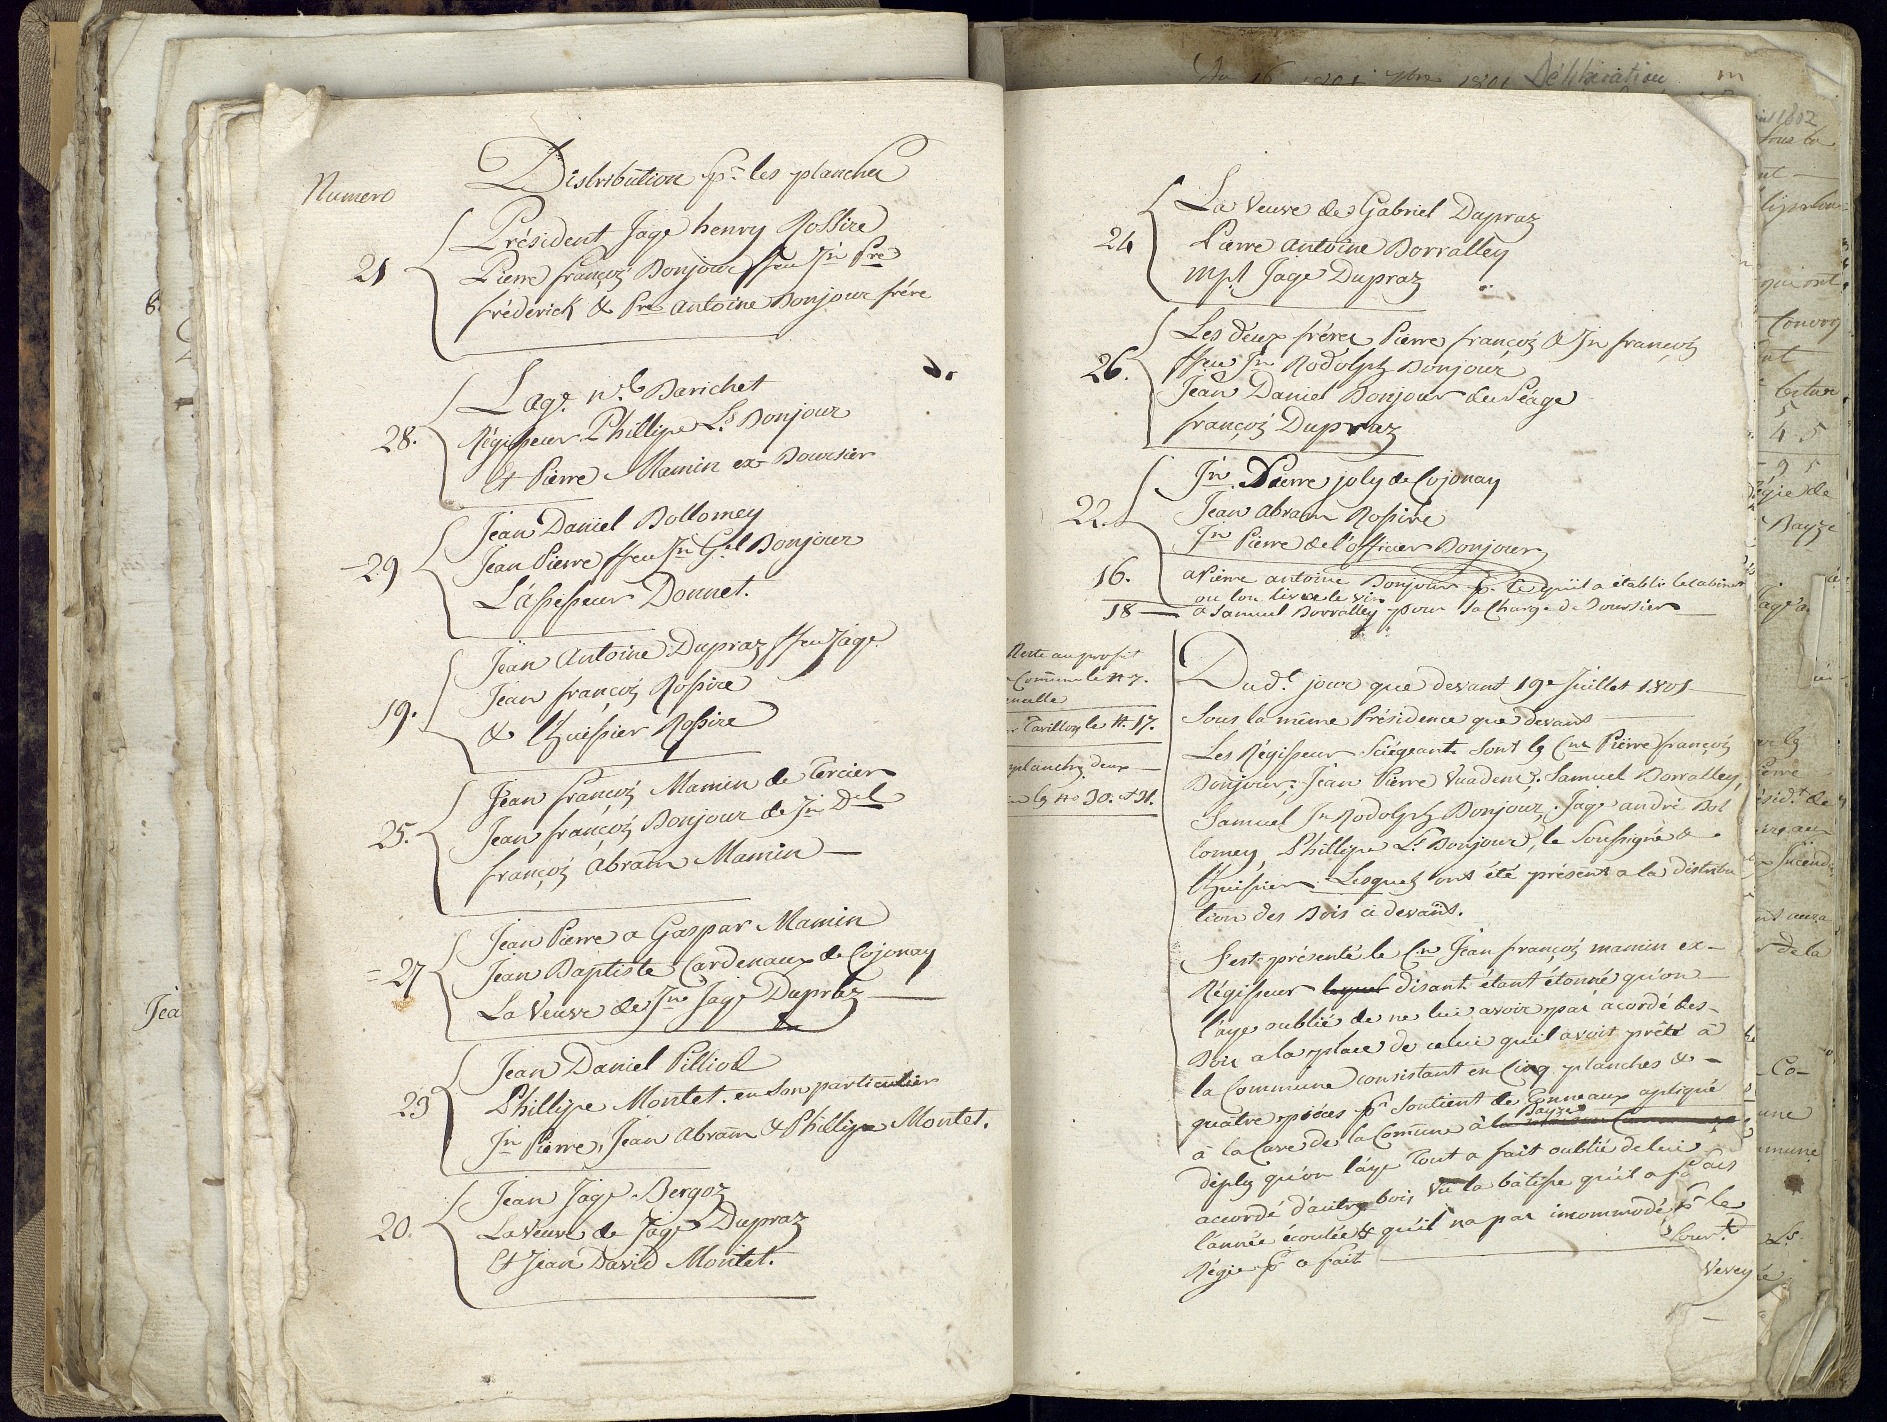 Numero
Distribution pr. les planches
21
Président Jaqe henry Rossire
Pierre françois Bonjour ffeu Jn Pre
fréderick & Pre antoine Bonjour frére
28.
Régisseur Phillipe Ls Bonjour
Et Pierre Mamin ex Boursier
29
Jean Daniel Dollomey
Jean Pierre ffeu Jn Gel Bonjour
L'assesseur Donnet.
19.
Jean Antoine Dupraz ffeu Jaqe
Jean françois Rossire
& l'huissier Rossire
25.
Jean françois Mamin de Tercier
Jean françois Bonjour de Jn Del
françois Abram Mamin
27
Jean Pierre a Gaspar Mamin
Jean Baptiste Cardenaux de Cojonay
La Veuve de Jn Jaqe Dupraz
23
Jean Daniel Pilliod
Phillipe Montet en son particulier
Jn Pierre, Jean Abram & Phillipe Montet.
20.
Jean Jaqe Bergoz
La Veuve de Jaqe Dupraz
Et Jean David Montet.
24
La Veuve de Gabriel Dupraz
Pierre Antoine Borralley
Jaqe Dupraz
26.
Les deux fréres Pierre françois & Jn françois
ffeu Jn Rodolph Bonjour
Jean Daniel Bonjour du Péage
françois Dupraz
22.
Jn Pierre joly de Cojonay
Jean Abram Rossire
Jn Pierre de l'officier Bonjour
16.
a Pierre antoine Bonjour pr. ce qu'il a établi le cabinet
ou l'on livre le vin
18
a Samuel Borralley pour sa Charge de Boursier
Reste au profit
Commune le N 7.
Tavillon le N. 17.
planches deux
N° 30. et 31.
Dudt. jour que devant 19e Juillet 1801
Sous la même Présidence que devant
Les Régisseur Siégeants sont les Cns Pierre françois
Bonjour, Jean Pierre Vuadens, Samuel Borralley,
Samuel Jn Rodolph Bonjour, Jaqe andré Dol
lomey, Phillipe Ls Bonjour, le Soussigné &
l'huissier. Lesquels ont été présent a la distribu
tion des Bois ci devant.
S'est présenté le Cn Jean françois mamin ex-
Régisseur lequel disant étant étonné qu'on
l'aye oublié de ne lui avoir pas acordé des
Bois a la place de celui qu'il avoit prêté à
la Commune consistant en Cinq planches &
quatre piéces pr. soutient de Tonneaux apliqué
à la Cave de la Commune à la Bayze
déplus qu'on l'aye Tout a fait oublié de lui
accordé d'autre bois vu la bâtisse qu'il a fais
l'année écoulée & qu'il n'a pas incommodé pr. le
Régie pr. a fait
Vevey